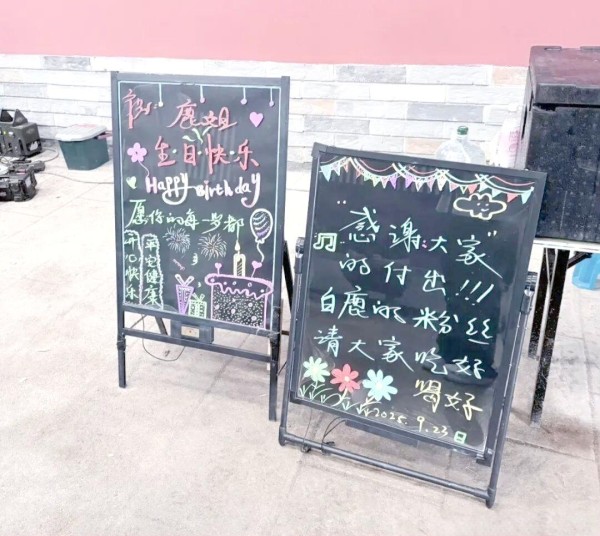 鹿姐
生·日·快·乐
Happy Birthday
愿你的每一岁都
开心快乐
平安健康
"感谢大家"
的付出!!!
白鹿的粉丝
请大家吃好
喝好
2025.9.23日